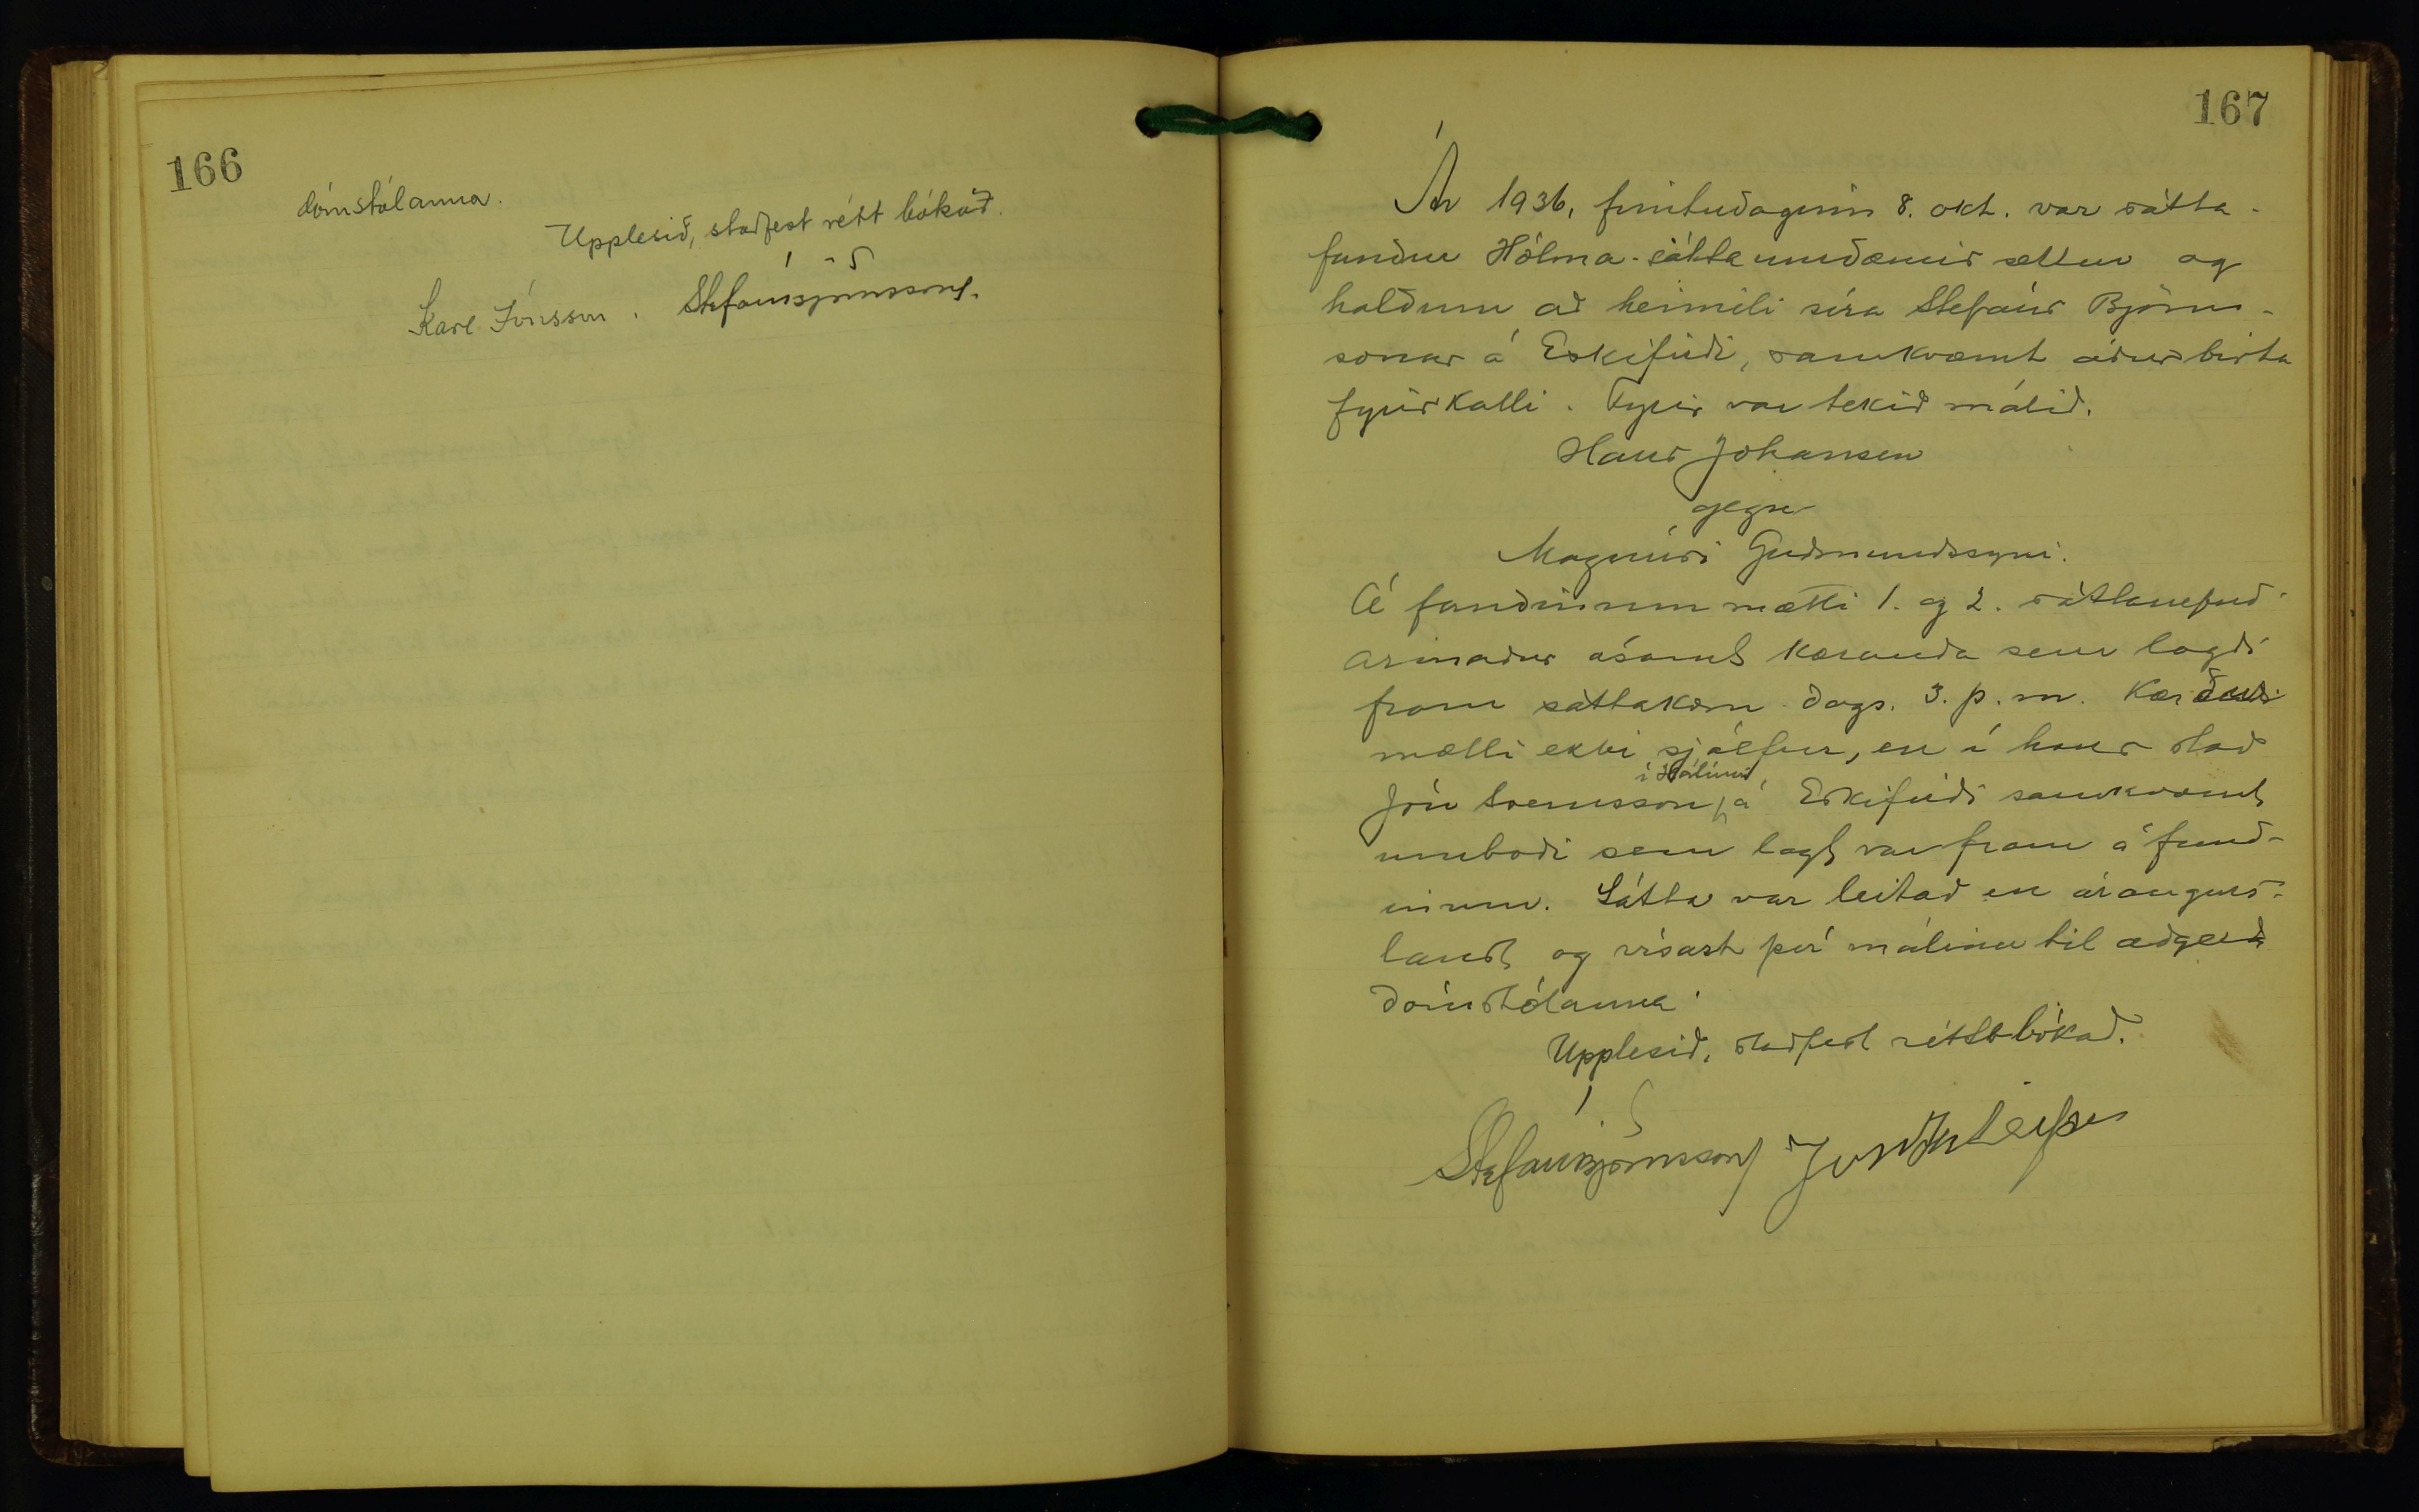 166
dómstólanna.
Upplesið, staðfest rétt bókað.
Karl Jónsson. Stefán Björnsson.
167
Ár 1936, fimtudaginn 8. okt. var sátta-
fundur Hólma-sáttaumdæmis settur og
haldinn að heimili síra Stefáns Björns-
sonar á Eskifirði, samkvæmt áður birta
fyrirkalli. Fyrir var tekið málið.
Hans Johansen
gegn
Magnúsi Guðmundssyni.
Á fundinum mætti 1. og 2. sáttanefnd-
armaður ásamt kæranda sem lagði
fram sáttakæru dags. 3. þ. m. Kærður
mætti ekki sjálfur, en í hans stað
Jón Sveinsson í á Eskifirði samkvæmt
umboði sem lagt var fram á fund-
inum. Sátta var leitað en árangurs-
laust og vísast því málinu til aðgerða
dómstólanna.
Upplesið, staðfest rétt bókað.
Stefán Björnsson